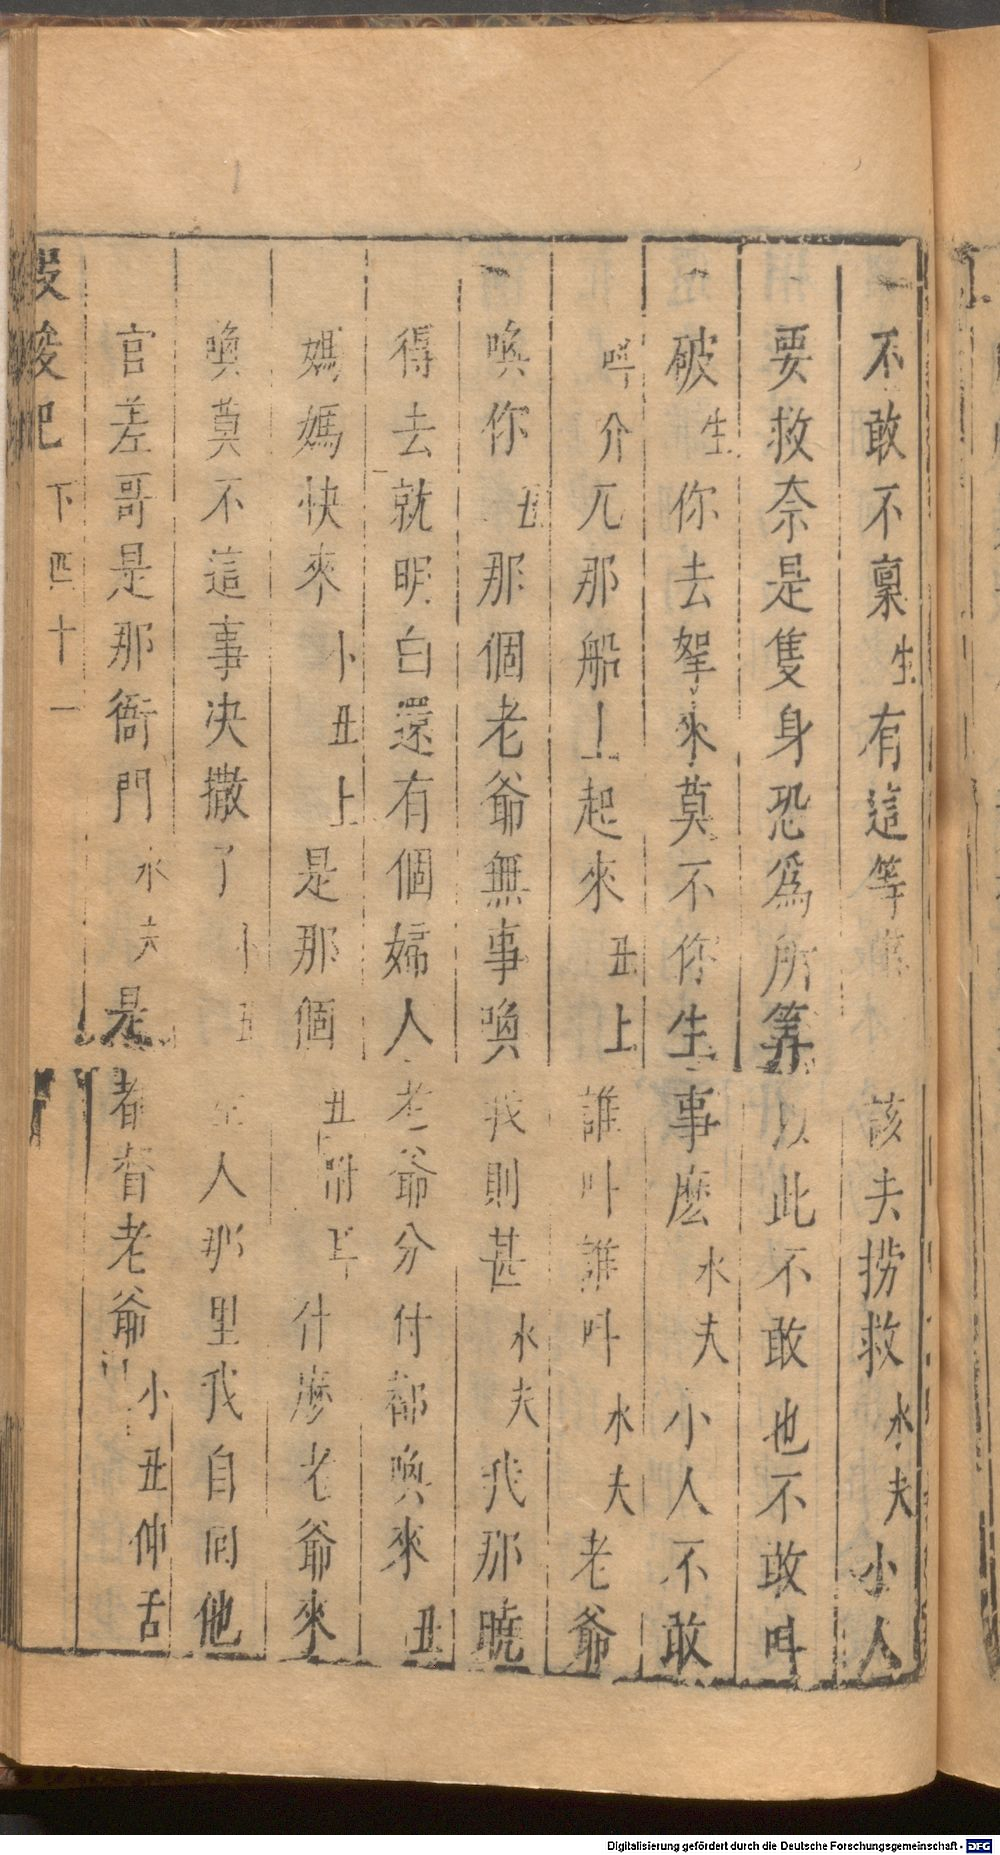 不敢不稟生有這等 該夫撈救水夫小人
要救奈是隻身恐為所筭以此不敢也不敢叫
破生你去拏來莫不你生事麽水夫小人不敢
呌介兀那船上起來丑上誰叫誰叫水夫老爺
喚你丑那個老爺無事喚我則甚水夫我那曉
得去就明白還有個婦人老爺分付都喚來丑
媽媽快來卜丑上是那個丑 什麽老爺來
喚莫不這事决撒了卜丑 人那里我自問他
官差哥是那衙門水夫是都督老爺小丑伸舌
記 下 四十一
Digitalisierung gefördert durch die Deutsche Forschungsgemeinschaft - DFG